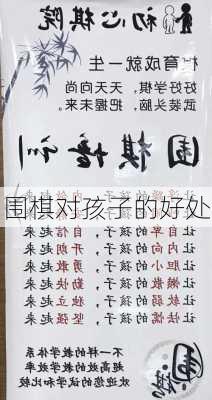 初心棋院
育成就一生
好好学棋
天天向尚
武装头脑,把握未来。
围棋培训
围棋对孩子的好处
让自卑的孩子,自信起来
让内向的孩子,开朗起来
让的孩子,勇敢起来
让懒散的孩子,勤快起来
让软弱的孩子,独立起来
让怯懦的孩子,坚强起来
不一样的教学体系
高效的教学方法
欢迎您的试学和比较
围棋